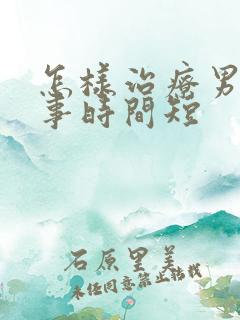 怎样治疗男
事時間短
石原里美
未经同意禁止转载